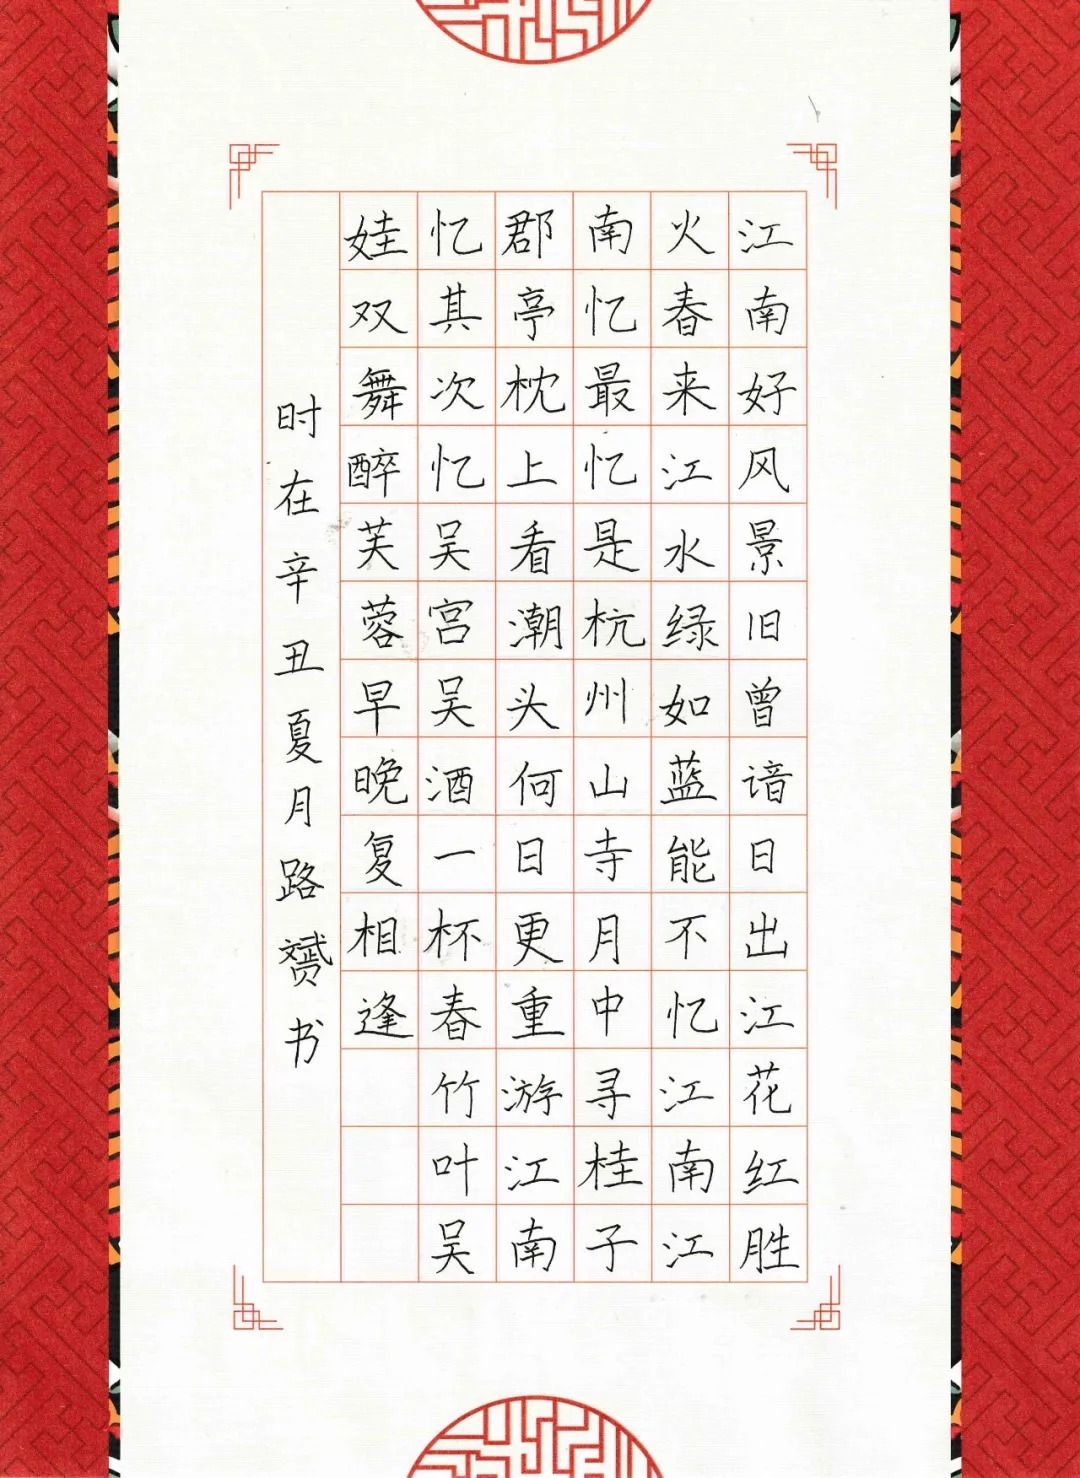 江南好风景旧曾谙日出江花红胜
火春来江水绿如蓝能不忆江南江
南忆最忆是杭州山寺月中寻桂子
郡亭枕上看潮头何日更重游江南
忆其次忆吴宫吴酒一杯春竹叶吴
娃双舞醉芙蓉早晚复相逢
时在辛丑夏月路赟书